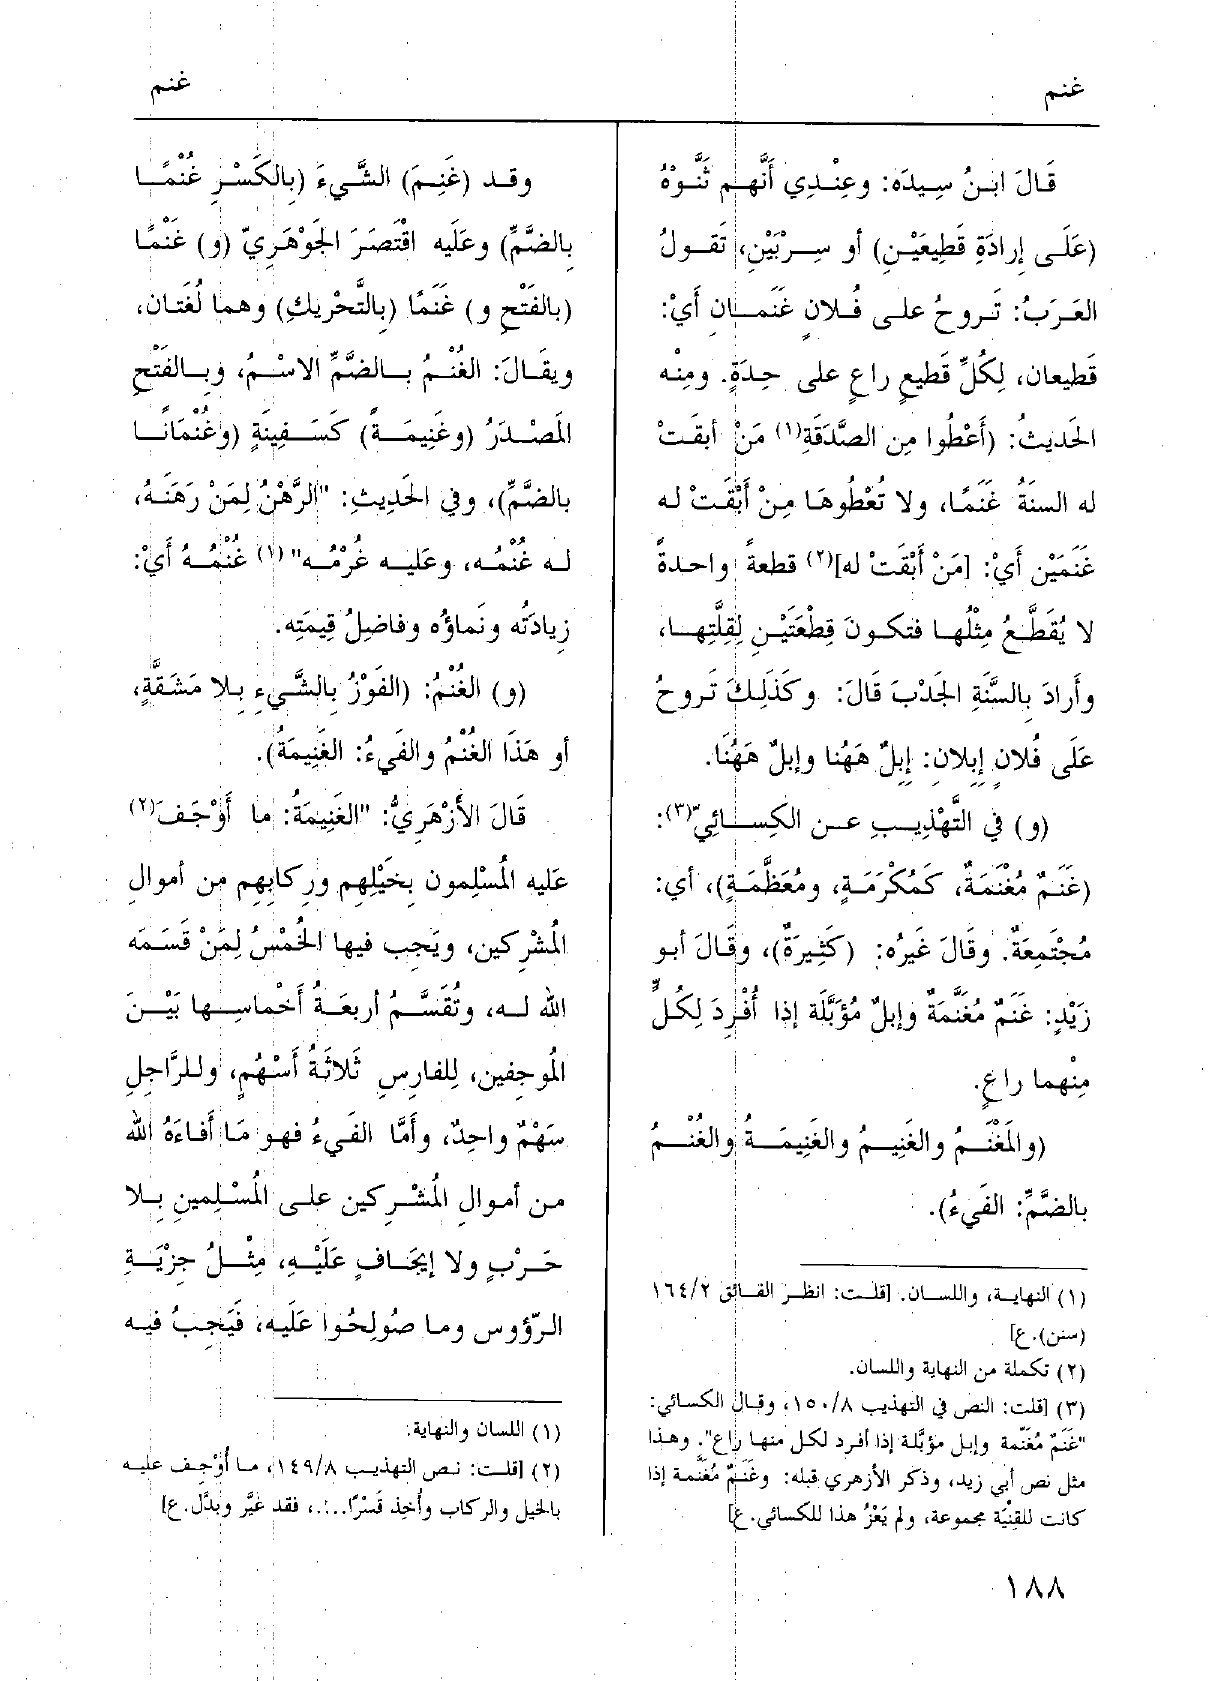 غنم
غنم
قَالَ ابنُ سِيدَه: وعِنْدِي أَنَّهم ثَنَّوْهُ
(عَلَى إرادَةِ قَطِيعَيْنِ) أو سِرْبَيْنِ، تَقولُ
العَرَبُ: تَروحُ على فُلانٍ غَنَمانِ أَيْ:
قَطيعان، لِكُلِّ قَطيعٍ راعٍ على حِدَةٍ. ومِنْه
الحَديثُ: (أَعْطُوا مِن الصَّدَقَةِ(١) مَنْ أبقَتْ
له السنَةُ غَنَمًا، ولا تُعْطُوهَا مِنْ أَبْقَتْ له
غَنَمَيْن أيْ: [مَنْ أَبْقَتْ له](٢) قطعةً واحدةً
لا يُقَطَّعُ مِثْلُها فتكونَ قِطْعَتَيْنِ لِقِلَّتِها،
وأرادَ بِالسَّنَةِ الجَدْبَ قَالَ: وكَذَلِكَ تَروحُ
عَلَى فُلانٍ إِبِلانِ: إِبِلٌ هَهُنا وإبِلٌ هَهُنَا.
(و) في التَّهْذِيبِ عن الكِسائِيّ(٣):
(غَنَمٌ مُغْنَمَةٌ، كَمُكْرَمَةٍ، ومُعَظَّمَةٍ)، أي:
مُجْتَمِعَةٌ. وقَالَ غَيرُه: (كَثِيرَةٌ)، وقَالَ أبو
زَيْدٍ: غَنَمٌ مُغَنَّمَةٌ وإبلٌ مُؤَبَّلَة إذا أُفْرِدَ لِكُلٍّ
مِنْهما راعٍ.
(والمَغْنَمُ والغَنِيمُ والغَنِيمَةُ والغُنْمُ
بالضَّمِّ: الفَيءُ).
(١) النهاية، واللسان. [قلت: انظر الفائق ١٦٤/٢
(سنن).ع]
(٢) تكملة من النهاية واللسان.
(٣) [قلت: النص في التهذيب ١٥٠/٨، وقال الكسائي:
"غَنَم مُغَنَّمة وإبل مؤبَّلة إذا أفرد لكل منها راع". وهذا
مثل نص أبي زيد، وذكر الأزهري قبله: وغَنَمٌ مُغَنَّمة إذا
كانت للقِنْيَة مجموعة، ولم يَعْزُ هذا للكسائي.ع]
وقد (غَنِمَ) الشَّيءَ (بالكَسْرِ غُنْمًا
بالضَّمِّ) وعَلَيه اقْتَصَرَ الجَوْهَرِيّ (و) غَنْمًا
(بالفَتْحِ و) غَنَمًا (بالتَّحْرِيكِ) وهما لُغَتَان،
ويقَالَ: الغُنْمُ بالضَّمِّ الاسْمُ، وبِالفَتْحِ
المَصْدَرُ (وغَنِيمَةً) كَسَفِينَةٍ (وغُنْمَانًا
بالضَّمِّ)، وفي الحَدِيثِ: "الرَّهْنُ لِمَنْ رَهَنَهُ،
له غُنْمُه، وعَليه غُرْمُه"(١) غُنْمُهُ أَيْ:
زِيادَتُه ونَماؤُه وفاضِلُ قِيمَتِه.
(و) الغُنْمُ: (الفَوْزُ بالشَّيءِ بِلا مَشَقَّةٍ،
أو هَذَا الغُنْمُ والفَيءُ: الغَنِيمَةُ).
قَالَ الأَزْهَرِيُّ: "الغَنِيمَةُ: ما أَوْجَفَ(٢)
عَليه المُسْلِمون بِخَيْلِهِم ورِكابِهِم من أموالِ
المُشْرِكين، ويَجِب فيها الخُمْسُ لِمَنْ قَسَمَه
الله له، وتُقَسَّمُ أربعَةُ أَخْماسِها بَيْنَ
المُوجِفين، لِلفارِسِ ثَلاثَةُ أَسْهُمٍ، وللرَّاجِلِ
سَهْمٌ واحِدٌ، وأَمَّا الفَيءُ فهو مَا أَفاءَهُ الله
من أموالِ المُشْرِكين على المُسْلِمينِ بِلا
حَرْبٍ ولا إيجَافٍ عَلَيْهِ، مِثْلُ جِزْيَةِ
الرّؤوس وما صُولِحُوا عَلَيه، فَيَجِبُ فيه
(١) اللسان والنهاية.
(٢) [قلت: نص التهذيب ١٤٩/٨، ما أَوْجِف عليه
بالخيل والركاب وأُخِذ قَسْرًا...، فقد غيَّر وبدَّل.ع]
١٨٨